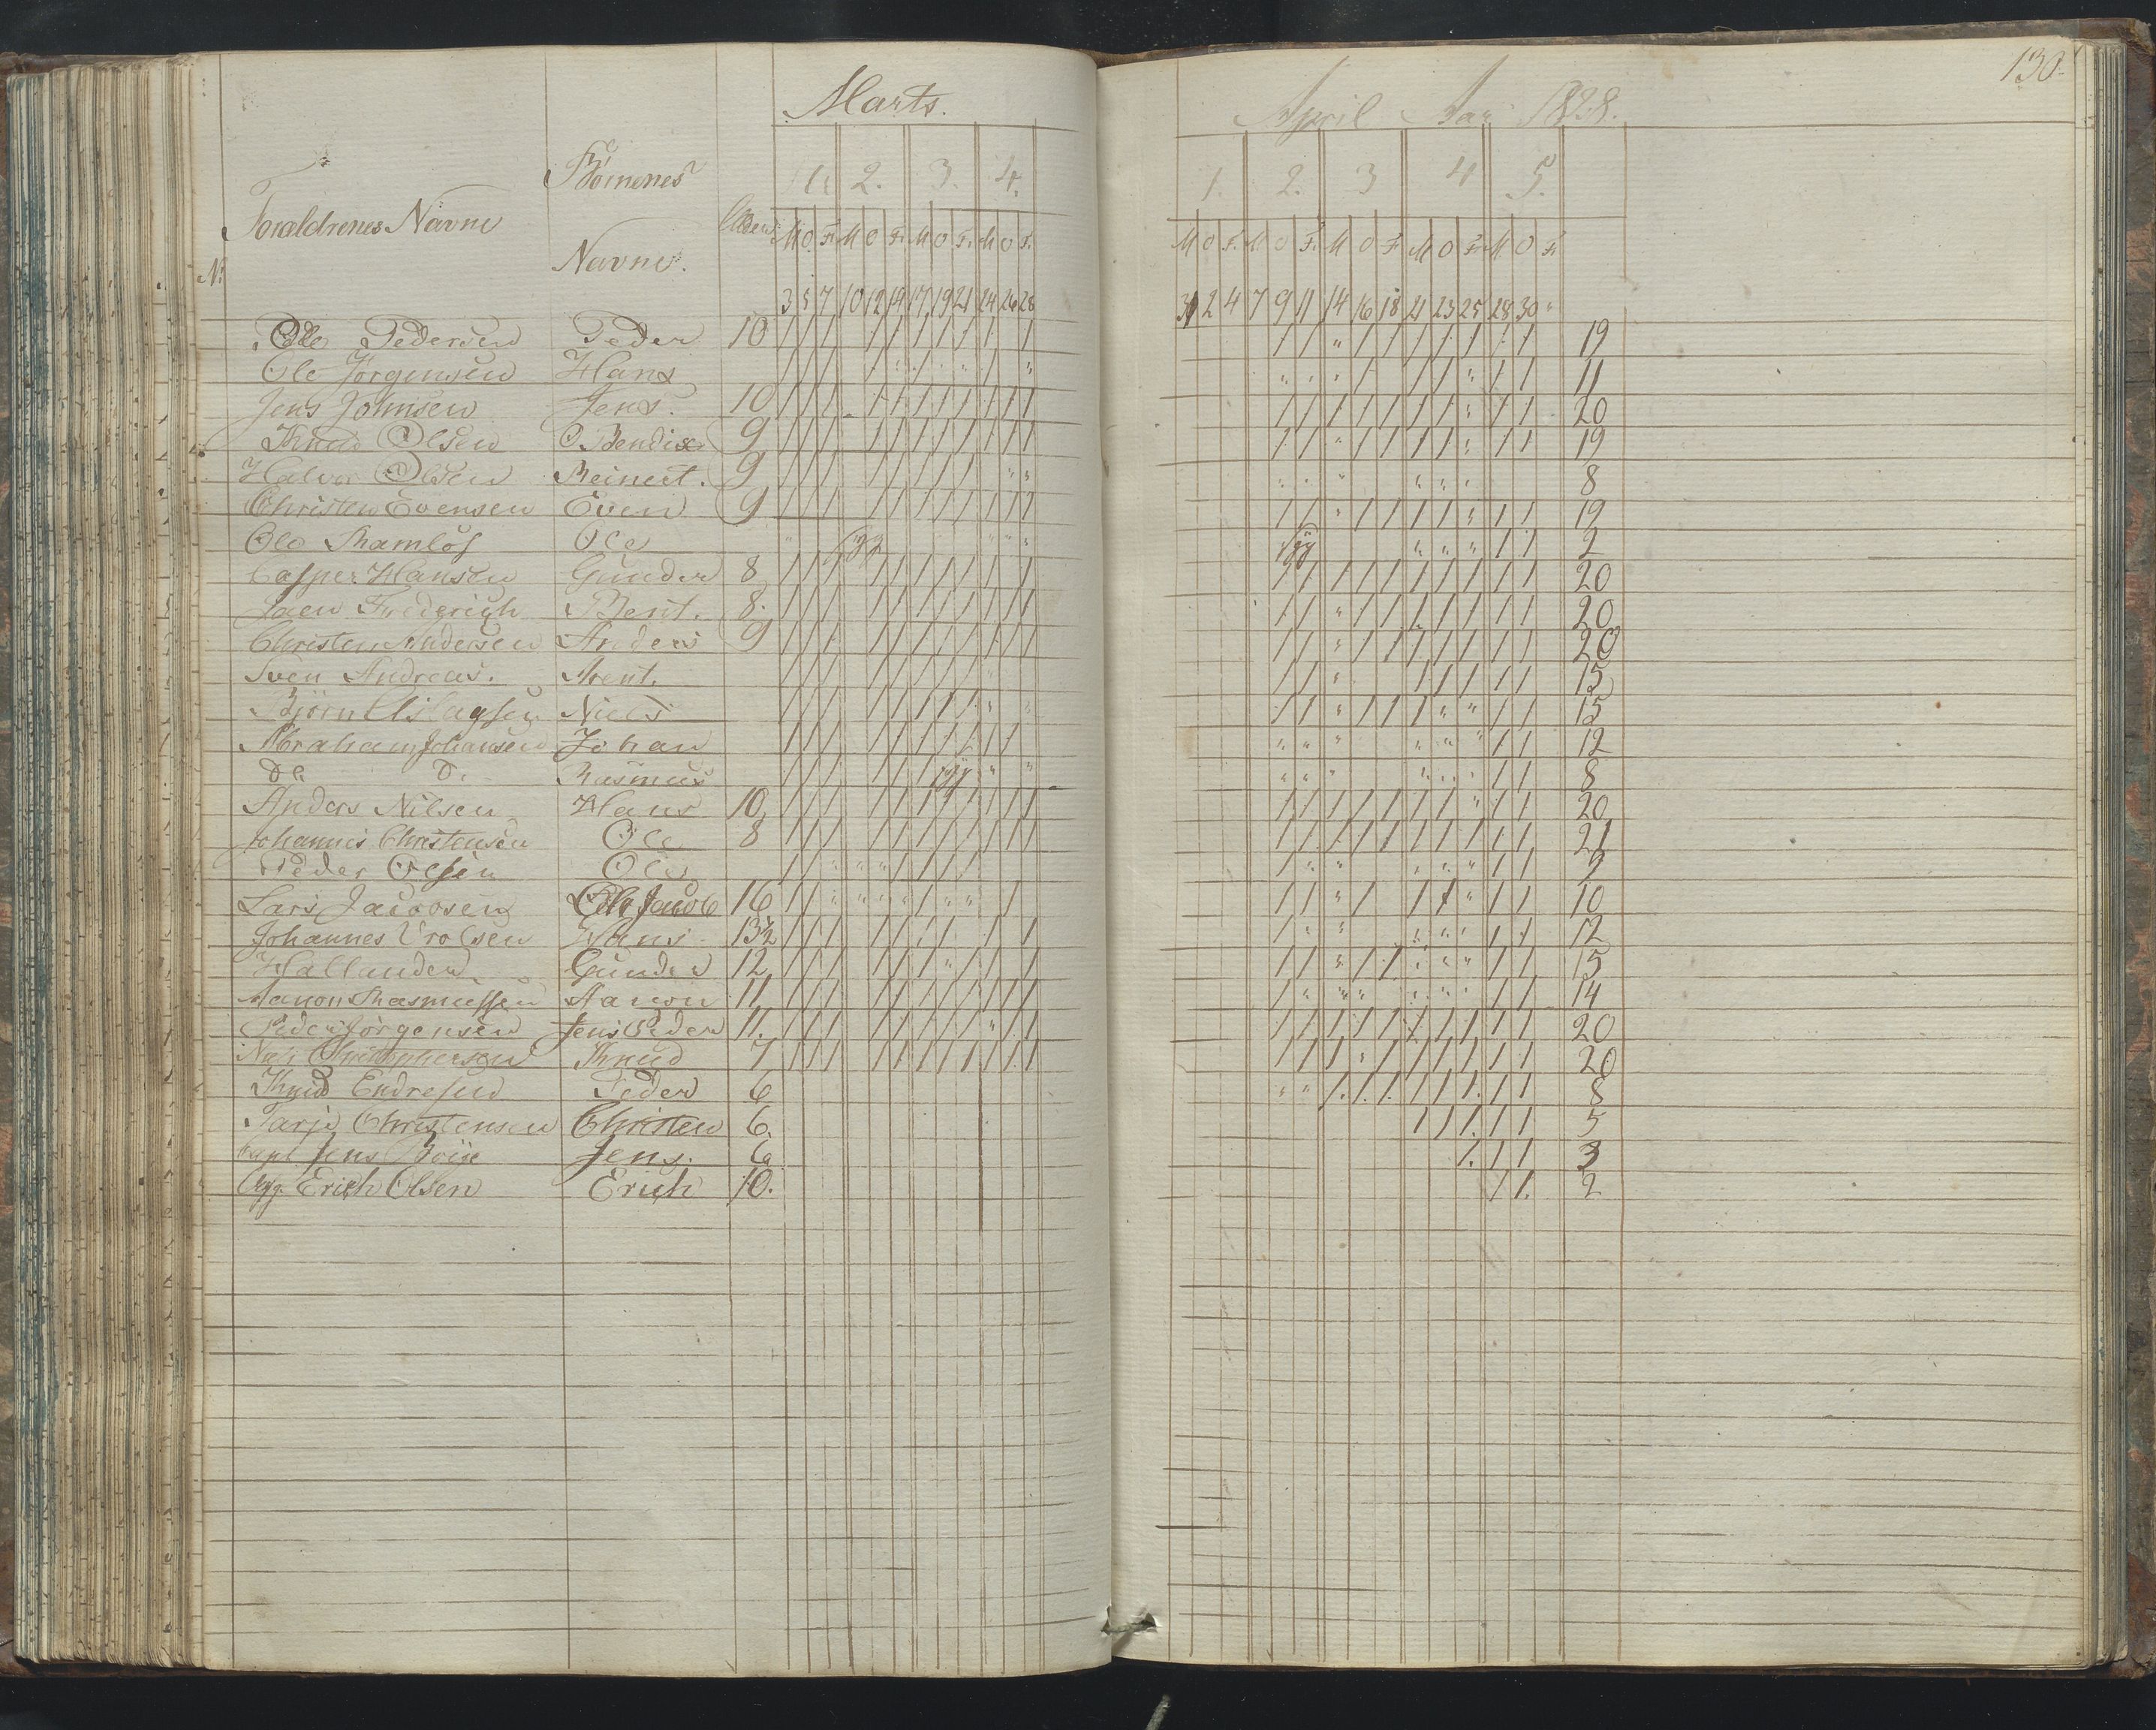 130.
Marts.
April Aar 1828.
Børnenes
Foraldrenes Navne
Navne.
Alder
N.
1. 2. 3. 4.
M O. F. M O F. M O F. M O F.
3 5 7 10 12 14 17 19 21 24 26 28
1. 2. 3 4 5.
M O F. M O F. M O F. M O F. M. O F.
31 2 4 7 9 11 14 16 18 21 23 25 28 30 "
Ole Pedersen Peder 10 19
Ole Jörgensen Hans 11
Jens Johnsen Jens. 10 20
Knud Olsen O. Bendix 9 19
Halvor Olsen Reinert. 9 8
Christen Evensen Even 9 19
Ole Ramlös Ole syg syg 2
Casper Hansen Gunder 8 20
Frederich Bent. 8. 20
Christen Andersen Anders 9 20
Sven Andreas. Arent. 15
Björn Aslagsen Niels 15
Abraham Johansen Johan 12
Do Do Rasmus syg 8
Anders Nilsen Hans 10 20
Johannes Christensen Ole 8 21
Peder Olsen Ole 9
Lars Jacobsen Ole Jacob 16 10
Johannes Hans 13½ 12
Hallander Gunder 12 15
Aanon Rasmussen Aanon 11 14
Peder Jörgensen Jens Peder 11. 20
Christophersen Knud 7 20
Knud Endresen Peder 6 8
Tarje Christensen Christen 6. 5
Capt Jens Böije Jens. 6 3
Erich Olsen Erich 10. 2